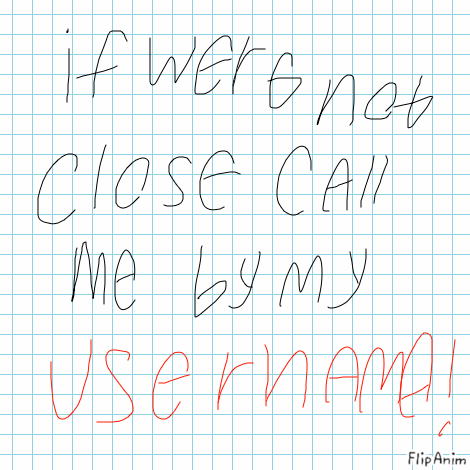 if were not
close call
me by my
username!
FlipAnim